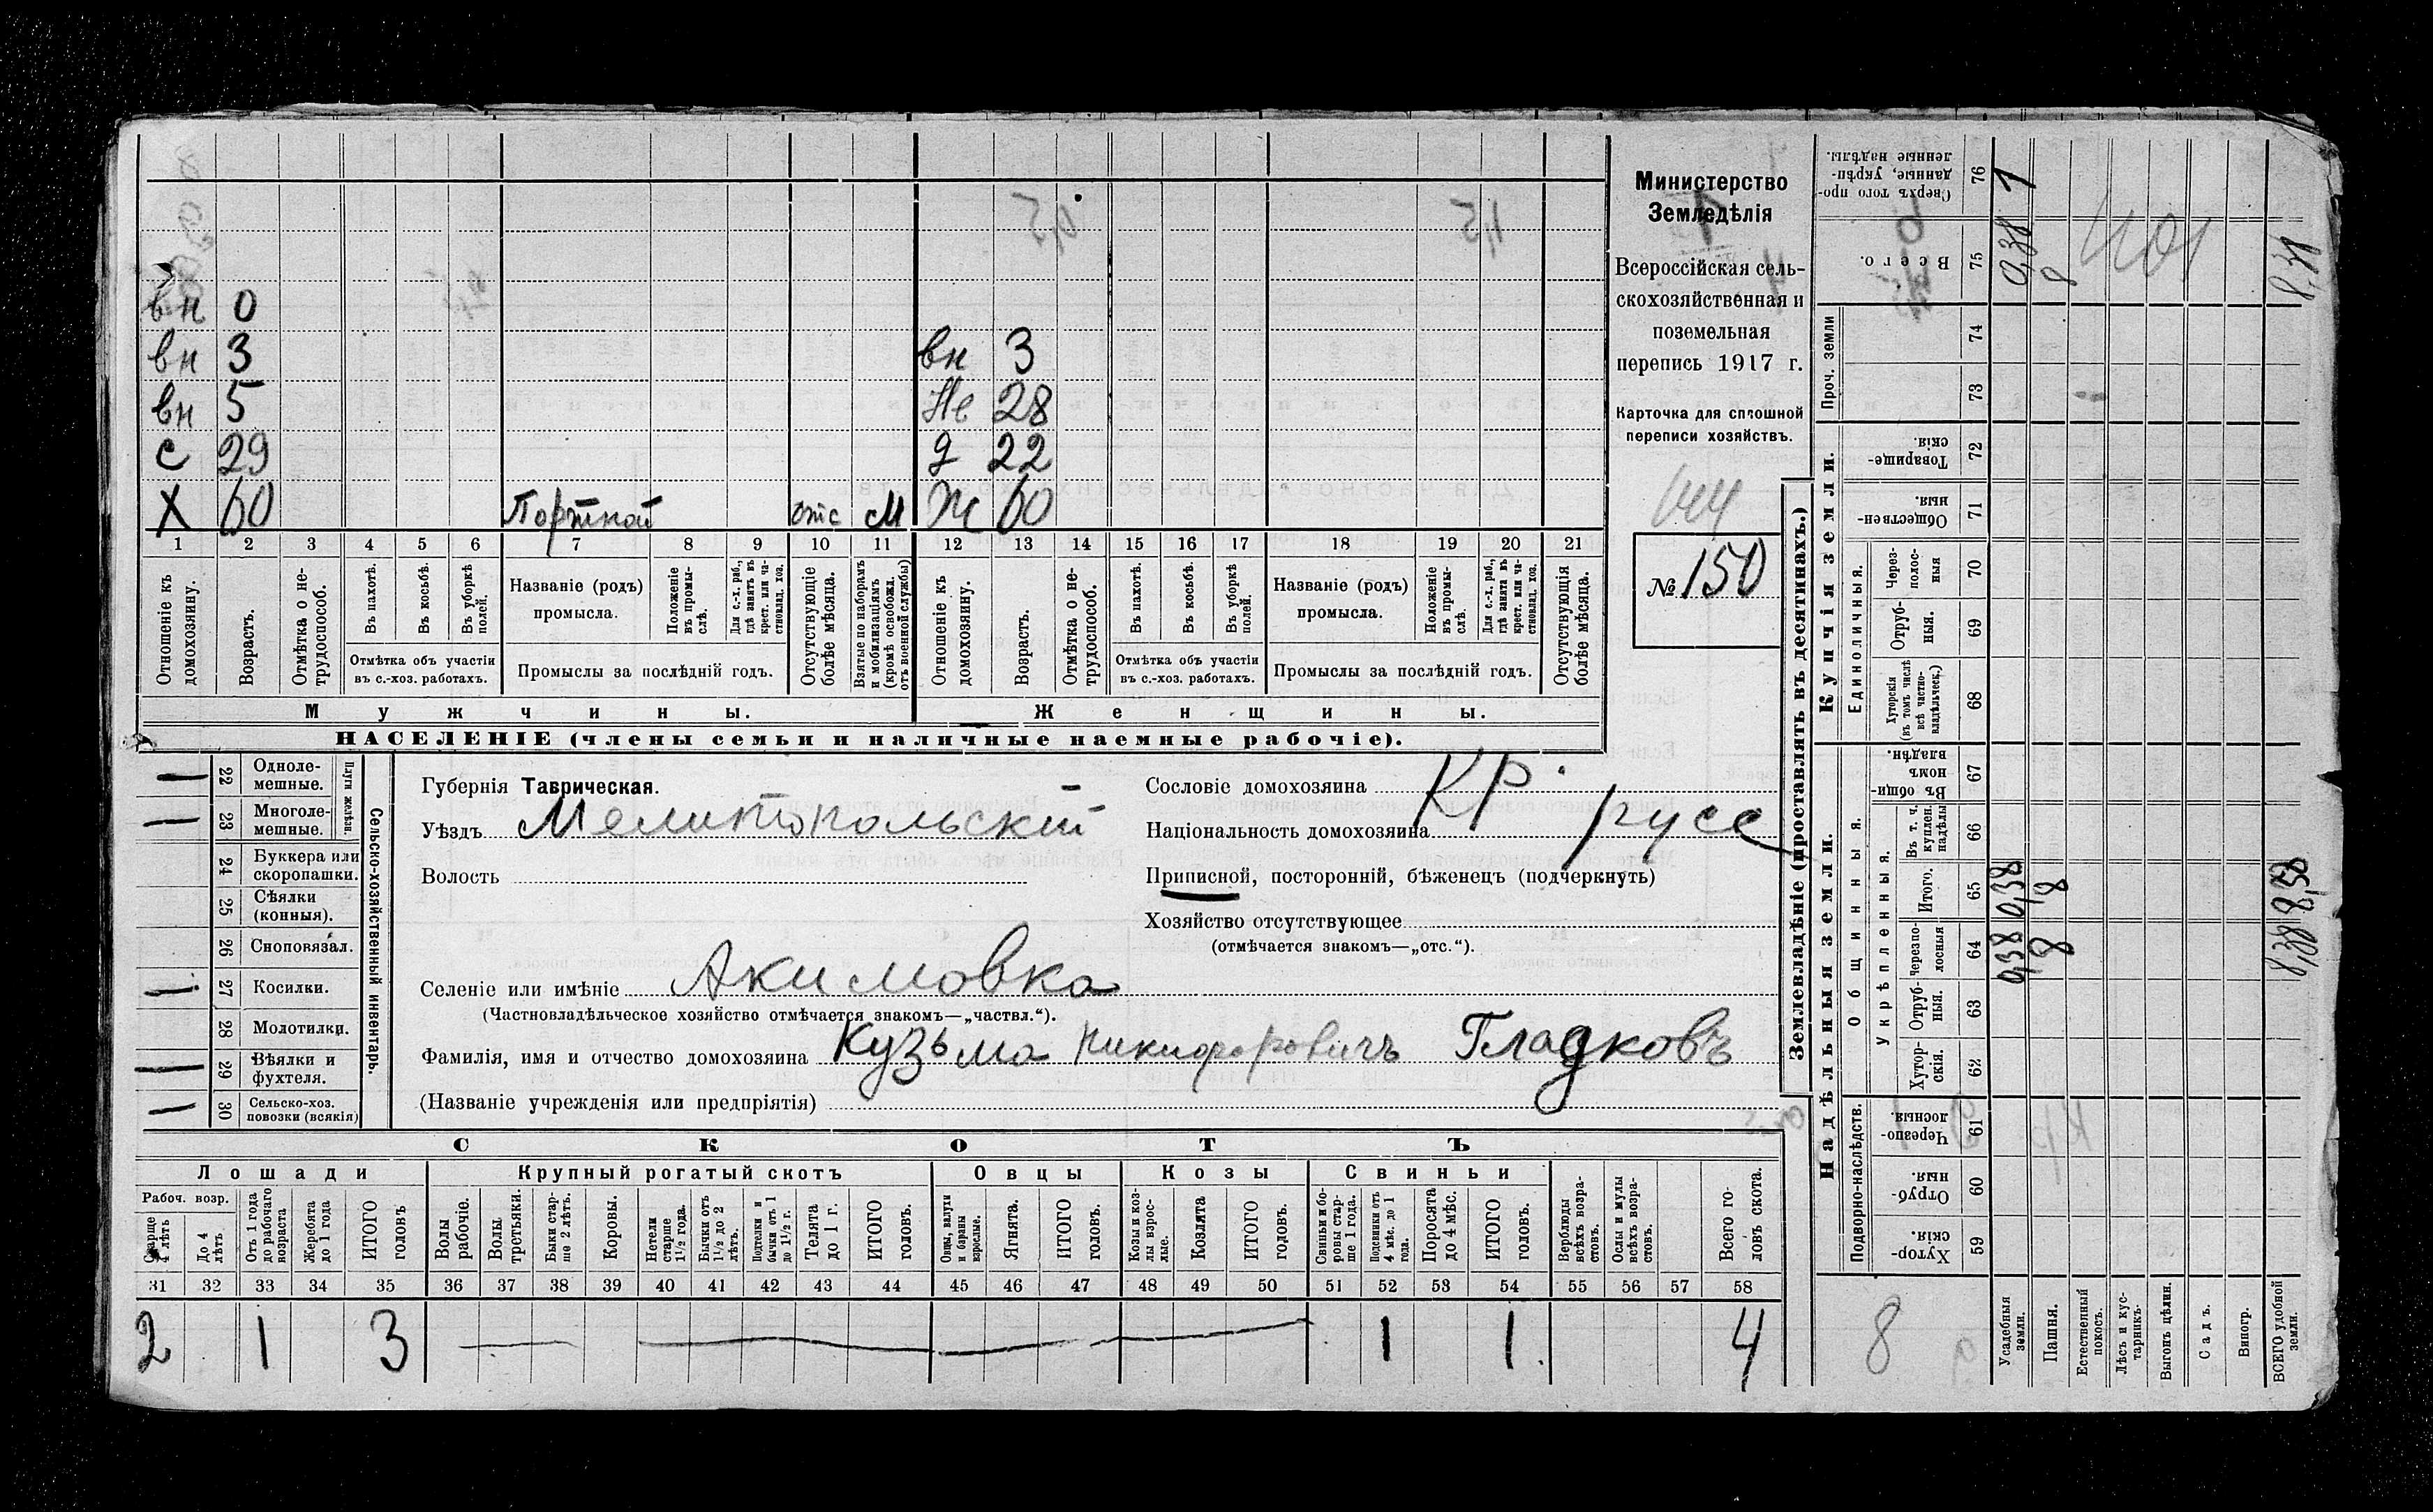 вн 0
вн 3 вн 3
вн 5 Не 28
с 29 д 22
Х 60 Портной отс м Ж 60
1 2 3 4 5 6 7 8 9 10 11 12 13 14 15 16 17 18 19 20 21
Отношеніе къ домохозяину.
Возрастъ.
Отмѣтка о не-трудоспособ.
Въ пахотѣ.
Въ косьбѣ.
Въ уборкѣ полей.
Отмѣтка объ участіи въ с.-хоз. работахъ.
Названіе (родъ) промысла.
Положеніе въ промы-слѣ.
Для с.-х. раб., гдѣ занятъ въ крест. или ча-стновлад. хоз.
Промыслы за послѣдній годъ.
Отсутствующіе болѣе мѣсяца.
Взятые по наборамъ и мобилизаціямъ (кромѣ освобожд. отъ военной службы)
Отношеніе къ домохозяину.
Возрастъ.
Отмѣтка о не-трудоспособ.
Въ пахотѣ.
Въ косьбѣ.
Въ уборкѣ полей.
Отмѣтка объ участіи въ с.-хоз. работахъ.
Названіе (родъ) промысла.
Положеніе въ промы-слѣ.
Для с.-х. раб., гдѣ занята въ крест. или ча-стновлад. хоз.
Промыслы за послѣдній годъ.
Отсутствующія болѣе мѣсяца.
Мужчины. Женщины.
НАСЕЛЕНІЕ (члены семьи и наличные наемные рабочіе).
Министерство
Земледѣлія
Всероссійская сель-
скохозяйственная и
поземельная
перепись 1917 г.
Карточка для сплошной
переписи хозяйствъ.
№ 150
22 Одноле-мешные.
23 Многоле-мешные.
Плуги желѣзн.
24 Буккера или скоропашки.
25 Сѣялки (конныя).
26 Сноповязал.
27 Косилки.
28 Молотилки.
29 Вѣялки и фухтеля.
30 Сельско-хоз. повозки (всякія)
Сельско-хозяйственный инвентарь.
Губернія Таврическая.
Уѣздъ Мелитопольскій
Волость
Селеніе или имѣніе Акимовка
(Частновладѣльческое хозяйство отмѣчается знакомъ—„частвл.“).
Фамилія, имя и отчество домохозяина Кузьма Никифоровичъ Гладковъ
(Названіе учрежденія или предпріятія)
Сословіе домохозяина Кр.
Національность домохозяина русс
Приписной, посторонній, бѣженецъ (подчеркнуть)
Хозяйство отсутствующее
(отмѣчается знакомъ—„отс.“).
СКОТЪ
Лошади Крупный рогатый скотъ Овцы Козы Свиньи
Рабоч. возр.
Старше 4 лѣтъ
До 4 лѣтъ
Отъ 1 года до рабочаго возраста
Жеребята до 1 года
ИТОГО головъ
Волы рабочіе.
Волы третьяки.
Быки стар-ше 2 лѣтъ.
Коровы.
Нетели старше 1½ года.
Бычки отъ 1½ до 2 лѣтъ.
Подтелки и бычки отъ 1 до 1½ г.
Телята до 1 г.
ИТОГО головъ.
Овцы, валухи и бараны взрослые.
Ягнята.
ИТОГО головъ.
Козы и коз-лы взрос-лые.
Козлята
ИТОГО головъ.
Свиньи и бо-ровы стар-ше 1 года.
Подсвинки отъ 4 мѣс. до 1 года.
Поросята до 4 мѣс.
ИТОГО головъ.
Верблюды всѣхъ возра-стовъ.
Ослы и мулы всѣхъ возра-стовъ.
Всего го-ловъ скота.
31 32 33 34 35 36 37 38 39 40 41 42 43 44 45 46 47 48 49 50 51 52 53 54 55 56 57 58
2 1 3 1 1 4
Землевладѣніе (проставлять въ десятинахъ.)
Надѣльныя земли. Купчія земли.
Проч. земли
Подворно-наслѣдств.
Общинныя.
Укрѣпленныя.
Единоличныя.
Сверхъ того про-данные, укрѣп-ленные надѣлы. 76 1
Всего. 75 0,38 8 8,38
74
73
Товарище-скія. 72
Обществен-ныя 71
Через-полос-ныя 70
Отруб-ныя. 69
Хуторскія (въ томъ числѣ всѣ частно-владѣльческ.) 68
Въ общин-номъ владѣн. 67
Въ т. ч. куплен. надѣлы 66
Итого. 65 0,38 8 8,38
Черезпо-лосныя 64 0,38 8 8,38
Отруб-ныя. 63
Хутор-скія. 62
Черезпо-лосныя. 61 Кр
Отруб-ныя. 60
Хутор-скія. 59
8
Усадебныя земли.
Пашня.
Естественный покосъ.
Лѣсъ и кус-тарникъ.
Выгонъ цѣлин.
Садъ.
Виногр.
ВСЕГО удобной земли.